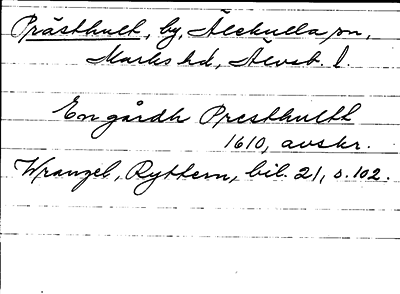 Prästhult, by, Älekulla sn,
Marks hd, Älvsb. l.
En gårdh Presthultt
1610, avskr.
Wrangel, Ryttern, bil. 21, s. 102.